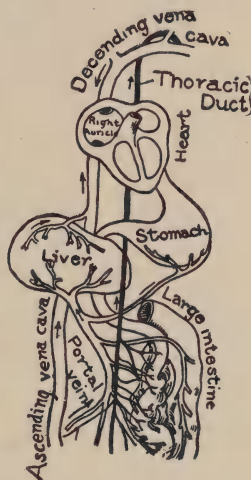 Decending vena
cava
Thoracic
Duct
Right
Auricle
Heart
Stomach
Liver
Large intestine
Portal
vein
Ascending vena cava